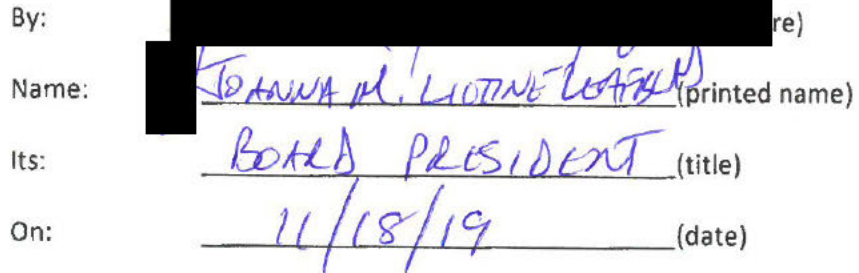 By: re)
Name: JOANNA M. LIOTINE-LEAFBLAD (printed name)
Its: BOARD PRESIDENT (title)
On: 11/18/19 (date)